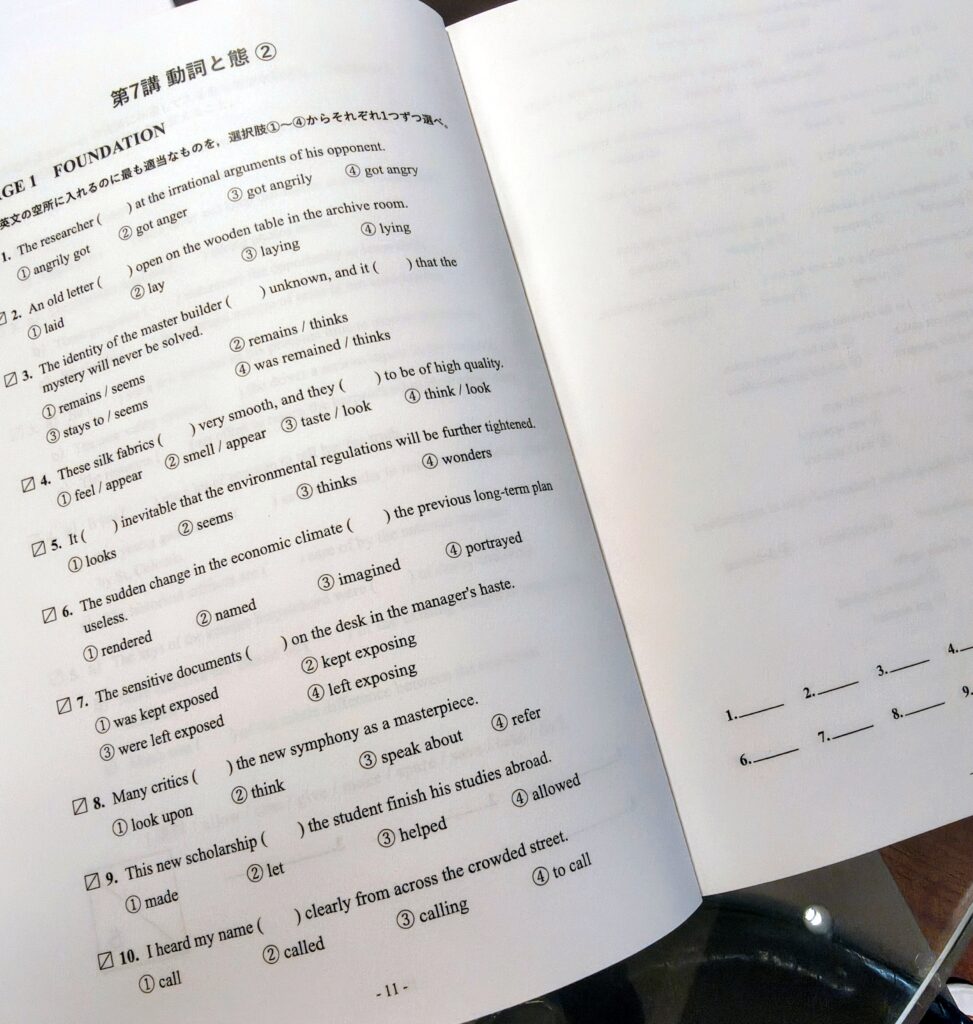 第7講 動詞と態 ②
GE 1 FOUNDATION
英文の空所に入れるのに最も適当なものを，選択肢①～④からそれぞれ1つずつ選べ。
1. The researcher ( ) at the irrational arguments of his opponent.
① angrily got ② got anger ③ got angrily ④ got angry
2. An old letter ( ) open on the wooden table in the archive room.
① laid ② lay ③ laying ④ lying
3. The identity of the master builder ( ) unknown, and it ( ) that the
mystery will never be solved.
① remains / seems ② remains / thinks
③ stays to / seems ④ was remained / thinks
4. These silk fabrics ( ) very smooth, and they ( ) to be of high quality.
① feel / appear ② smell / appear ③ taste / look ④ think / look
5. It ( ) inevitable that the environmental regulations will be further tightened.
① looks ② seems ③ thinks ④ wonders
6. The sudden change in the economic climate ( ) the previous long-term plan
useless.
① rendered ② named ③ imagined ④ portrayed
7. The sensitive documents ( ) on the desk in the manager's haste.
① was kept exposed ② kept exposing
③ were left exposed ④ left exposing
8. Many critics ( ) the new symphony as a masterpiece.
① look upon ② think ③ speak about ④ refer
9. This new scholarship ( ) the student finish his studies abroad.
① made ② let ③ helped ④ allowed
10. I heard my name ( ) clearly from across the crowded street.
① call ② called ③ calling ④ to call
- 11 -
1. 2. 3. 4.
6. 7. 8. 9.